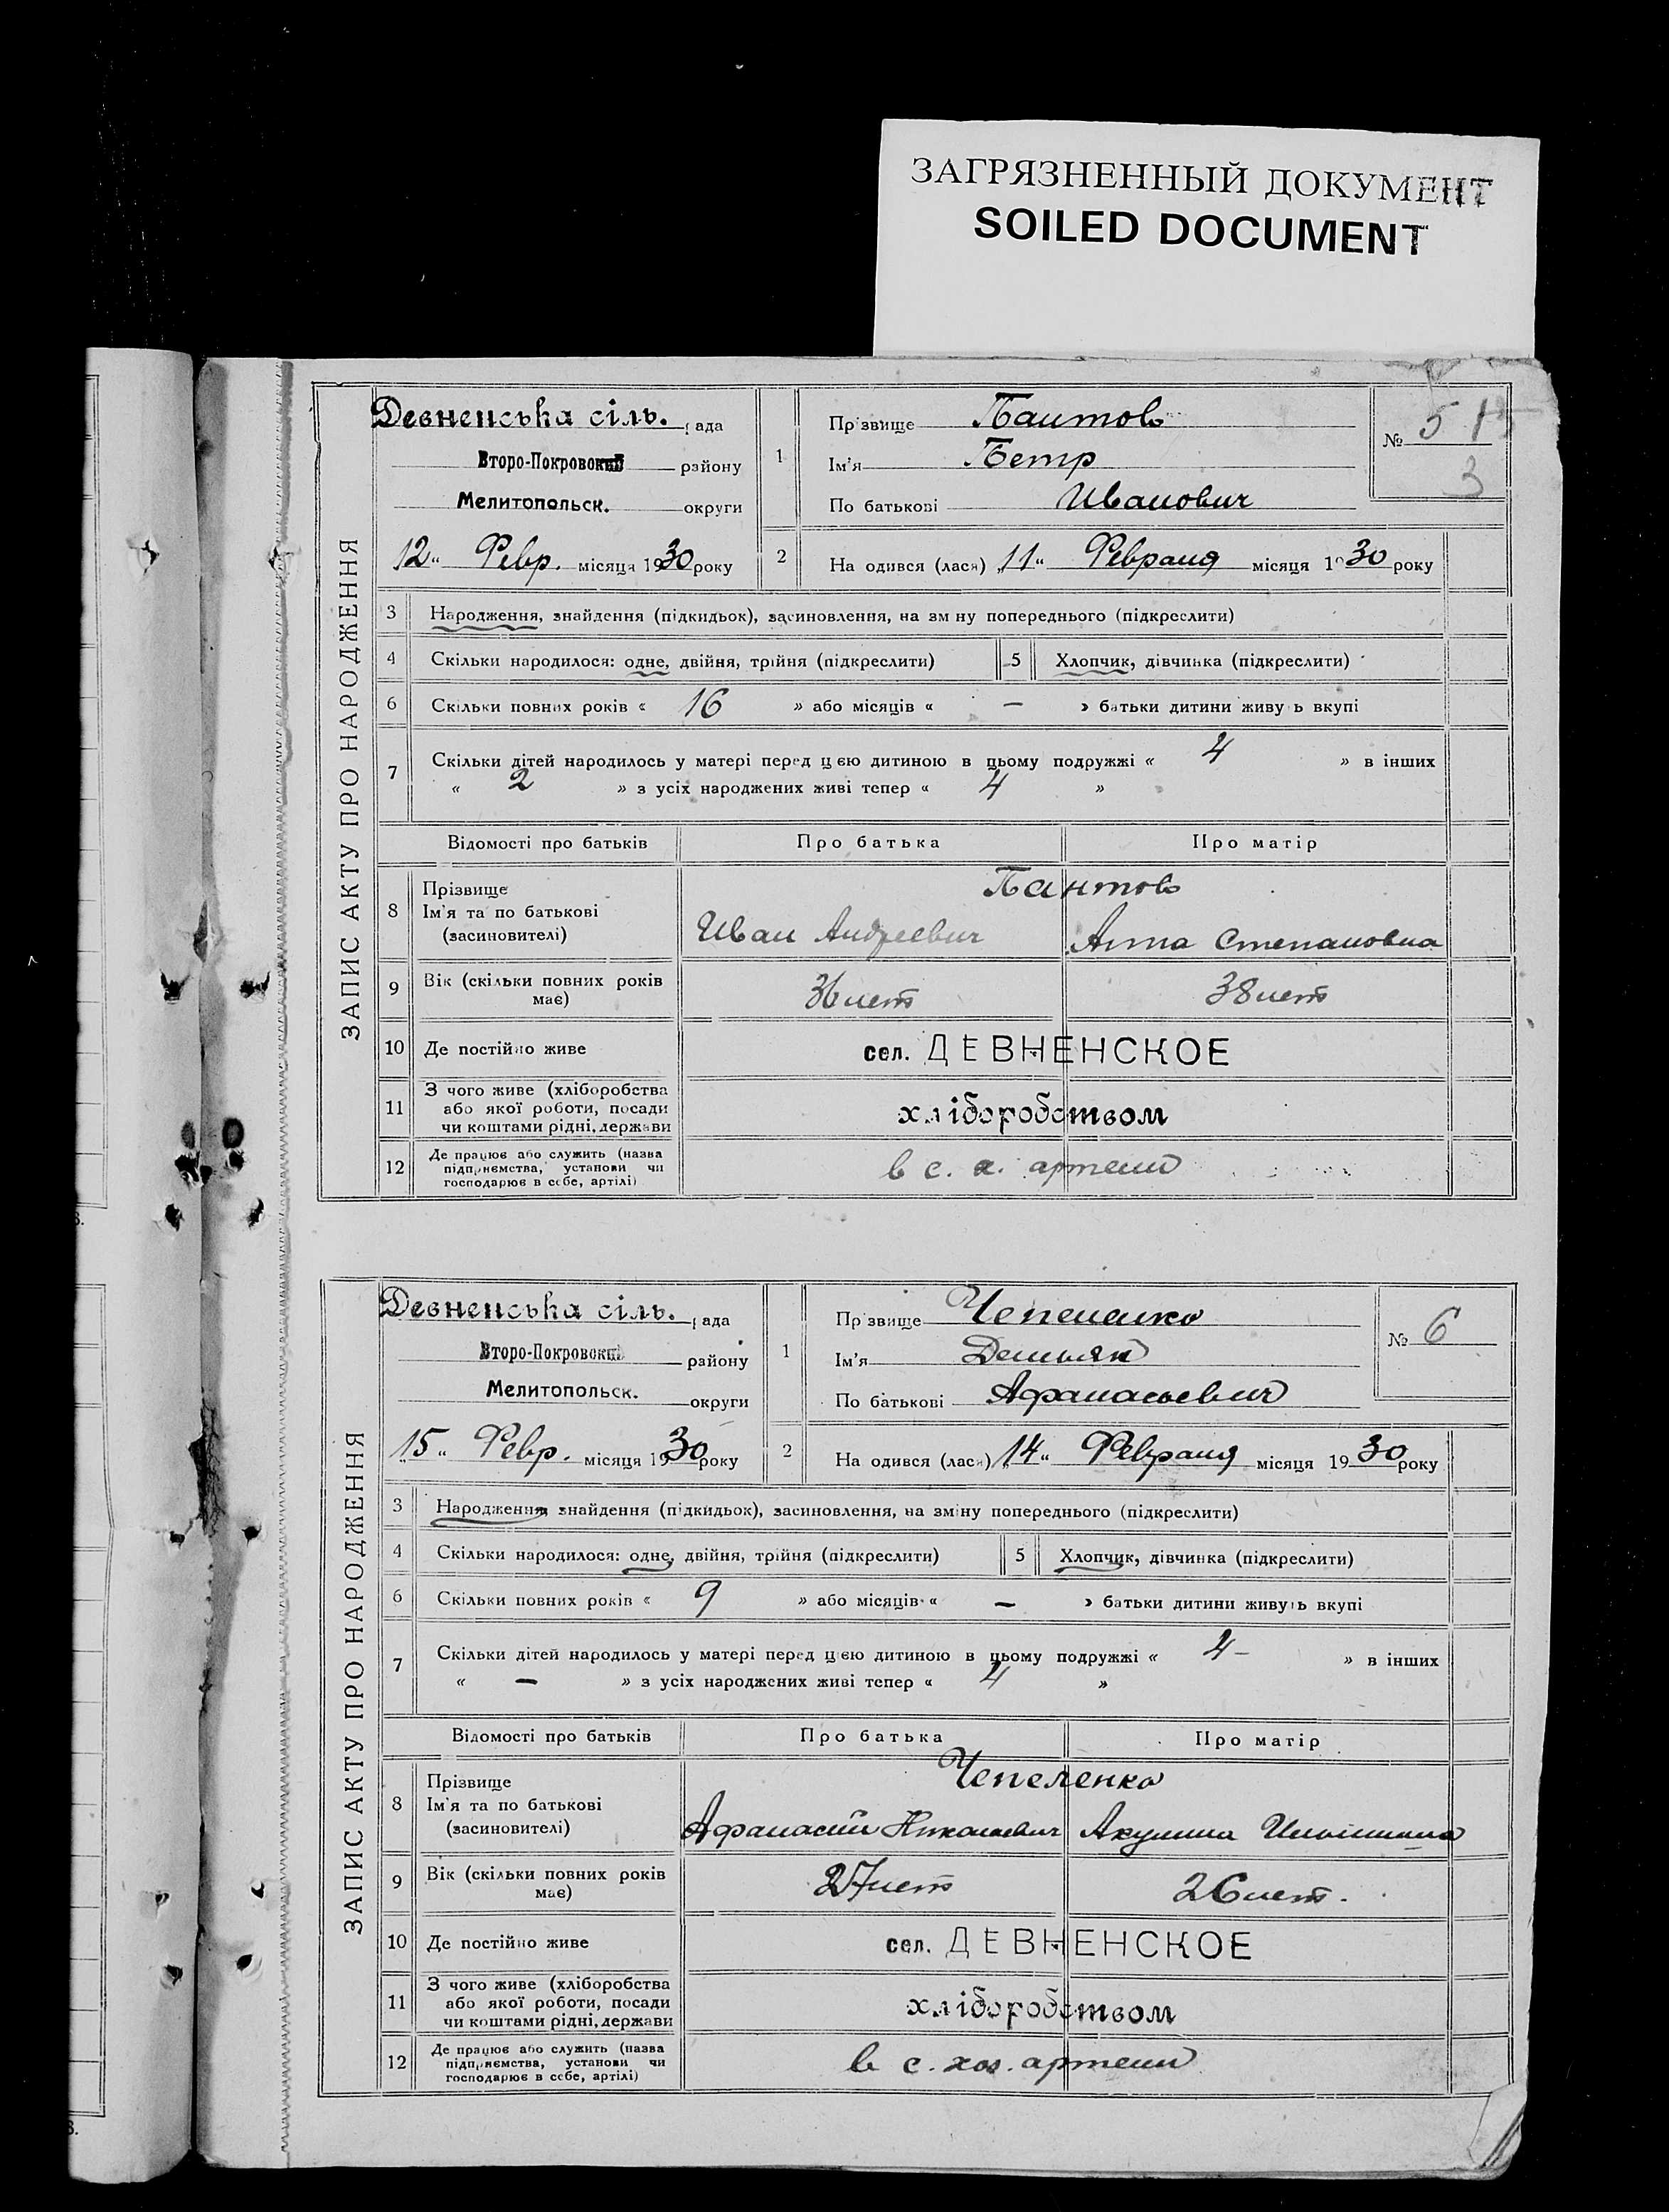 ЗАГРЯЗНЕННЫЙ ДОКУМЕНТ
SOILED DOCUMENT
ЗАПИС АКТУ ПРО НАРОДЖЕННЯ
Девненська сіль. рада
Второ-Покровский району
Мелитопольск. округи
12 " Февр. місяця 1930 року
1 Прізвище Пантов
Ім'я Петр
По батькові Иванович
№ 5 15
3
2 На одився (лася) „11" Февраля місяця 1930 року
3 Народження, знайдення (підкидьок), засиновлення, на зміну попереднього (підкреслити)
4 Скільки народилося: одне, двійня, трійня (підкреслити) 5 Хлопчик, дівчинка (підкреслити)
6 Скільки повних років « 16 » або місяців « — » батьки дитини живуть вкупі
7 Скільки дітей народилось у матері перед цією дитиною в цьому подружжі « 4 » в інших
« 2 » з усіх народжених живі тепер « 4 »
Відомості про батьків Про батька Про матір
8 Прізвище Пантов
Ім'я та по батькові Иван Андреевич Анна Степановна
(засиновителі)
9 Вік (скільки повних років має) 36 лет 38 лет
10 Де постійно живе сел. ДЕВНЕНСКОЕ
11 З чого живе (хліборобства
або якої роботи, посади хліборобством
чи коштами рідні, держави
12 Де працює або служить (назва
підприємства, установи чи в с. х. артели
господарює в себе, артілі)
ЗАПИС АКТУ ПРО НАРОДЖЕННЯ
Девненська сіль. рада
Второ-Покровский району
Мелитопольск. округи
„15" Февр. місяця 1930 року
1 Прізвище Чепеленко
Ім'я Демьян
По батькові Афанасьевич
№ 6
2 На одився (лася) „14" Февраля місяця 1930 року
3 Народження, знайдення (підкидьок), засиновлення, на зміну попереднього (підкреслити)
4 Скільки народилося: одне, двійня, трійня (підкреслити) 5 Хлопчик, дівчинка (підкреслити)
6 Скільки повних років « 9 » або місяців « — » батьки дитини живуть вкупі
7 Скільки дітей народилось у матері перед цією дитиною в цьому подружжі « 4 – » в інших
« — » з усіх народжених живі тепер « 4 »
Відомості про батьків Про батька Про матір
8 Прізвище Чепеленко
Ім'я та по батькові Афанасий Николаевич Акулина
(засиновителі)
9 Вік (скільки повних років має) 27 лет 26 лет.
10 Де постійно живе сел. ДЕВНЕНСКОЕ
11 З чого живе (хліборобства
або якої роботи, посади хліборобством
чи коштами рідні, держави
12 Де працює або служить (назва
підприємства, установи чи в с. хоз. артели
господарює в себе, артілі)